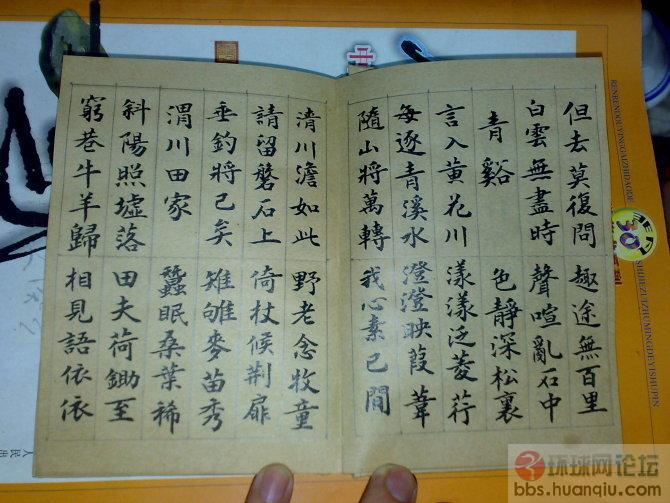 但去莫復問
白雲無盡時
青谿
言入黃花川
每逐青溪水
隨山將萬轉
趣途無百里
聲喧亂石中
色靜深松裏
漾漾泛菱荇
澄澄映葭葦
我心素已閒
清川澹如此
請留磐石上
垂釣將已矣
渭川田家
斜陽照墟落
窮巷牛羊歸
野老念牧童
倚杖候荆扉
雉雊麥苗秀
蠶眠桑葉稀
田夫荷鋤至
相見語依依
RENMENDOUYINGGAIZHIDAODE
30
SHIJIEZUIZHUMINGDEYISHUPIN
人民出
环球网论坛
bbs.huanqiu.com